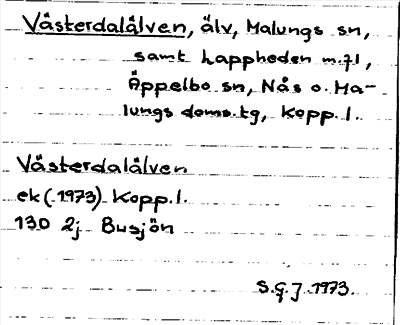 Västerdalälven, älv, Malungs sn,
samt Lappheden m.fl,
Äppelbo sn, Nås o. Ma-
lungs doms.tg, Kopp.l.
Västerdalälven
ek (1973) Kopp.l.
13D 2j Busjön
S.G.J 1973.